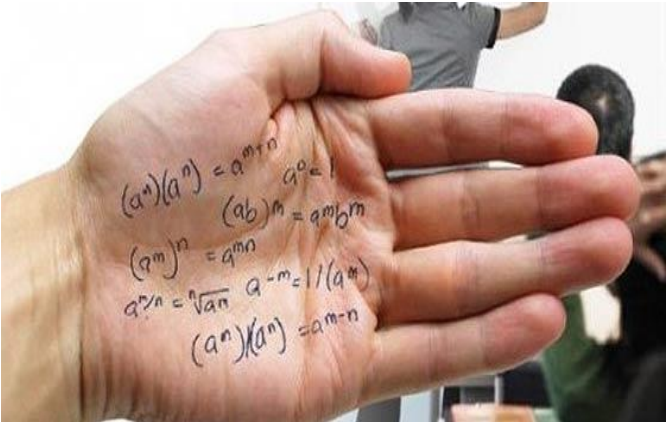 (aⁿ)(aⁿ) = aᵐ⁺ⁿ
a⁰ = 1
(ab)ᵐ = aᵐbᵐ
(aᵐ)ⁿ = aᵐⁿ
a⁻ᵐ = 1/(aᵐ)
(aⁿ)/(aⁿ) = aᵐ⁻ⁿ